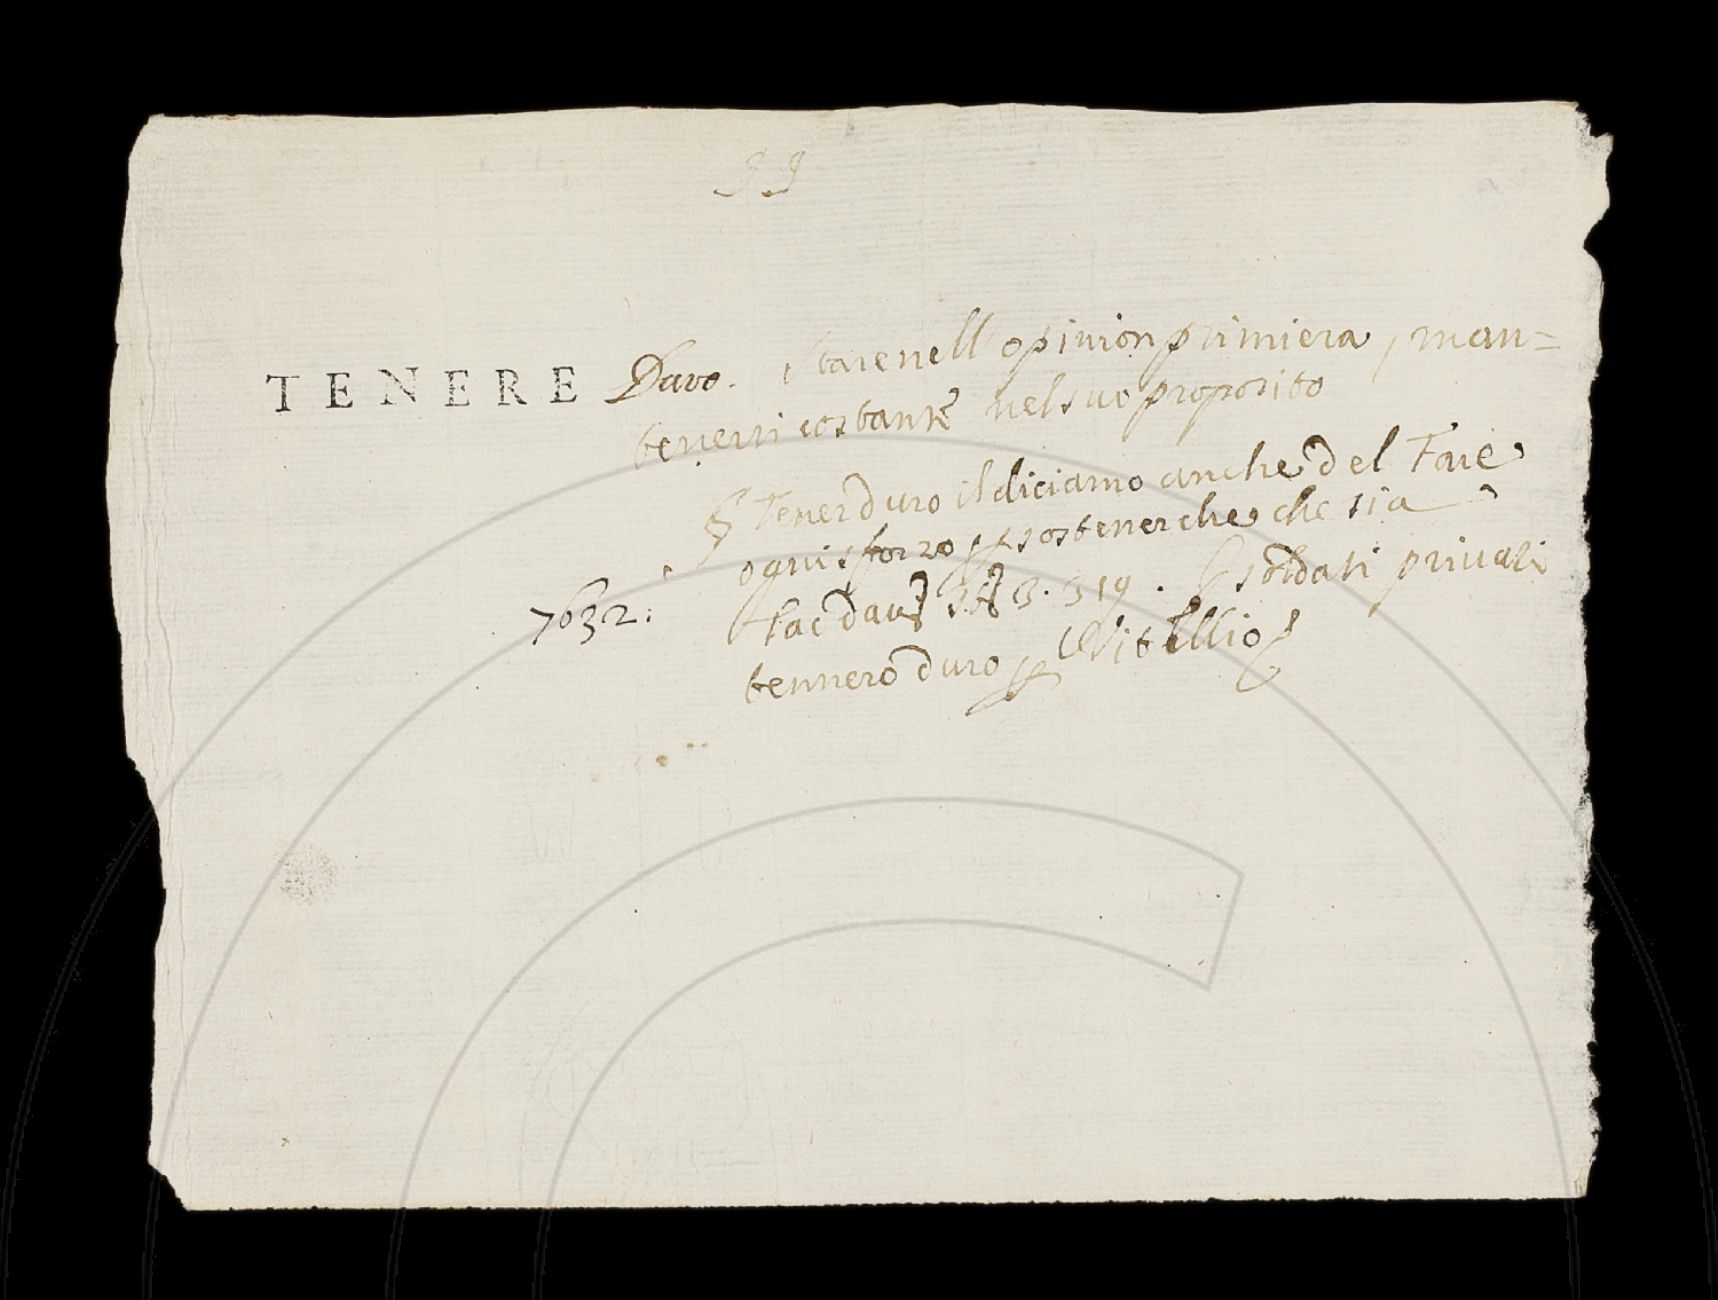 TENERE Duro. Stare nell' opinion primiera, man=
tenersi costante nel suo proposito
§ Tener duro il diciamo anche del Fare
ogni sforzo p sostener che che sia
7632: Tac Dav St 3. 319. I soldati privati
tennero duro p Vitellio